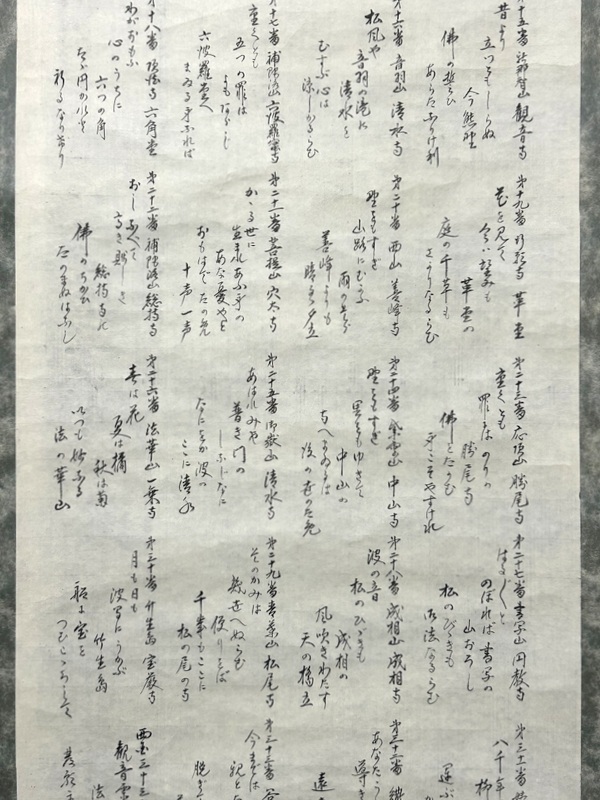 第十五番 新那智山 観音寺
昔より
立つともしらぬ
今熊野
佛の誓ひ
あらたなりけり
第十六番 音羽山 清水寺
松風や
音羽の滝に
清水を
むすぶ心は
涼しかるらむ
第十七番 補陀洛山 六波羅蜜寺
重くとも
五つの罪は
よもあらじ
六波羅堂へ
まゐる身なれば
第十八番 頂法寺 六角堂
わがおもふ
心のうちに
六つの角
たゞ円かれと
祈るなりけり
第十九番 行願寺 革堂
花を見て
今は望みも
革堂の
庭の千草も
さかりなるらむ
第二十番 西山 善峰寺
野をもすぎ
山路にむかふ
雨の空
善峰よりも
晴るゝ夕立
第二十一番 菩提山 穴太寺
かゝる世に
生まれあふ身の
あな憂やと
おもはでたのめ
十声一声
第二十二番 補陀洛山 総持寺
おしなべて
高き賤しき
総持寺の
佛のちかひ
たのまぬはなし
第二十三番 応頂山 勝尾寺
重くとも
罪にはのりの
勝尾寺
佛をたのむ
身こそやすけれ
第二十四番 紫雲山 中山寺
野をもすぎ
里をもゆきて
中山の
寺へまゐるは
後の世のため
第二十五番 御嶽山 清水寺
あはれみや
普き門の
しなじなに
なにをか波の
こゝに清水
第二十六番 法華山 一乗寺
春は花
夏は橘
秋は菊
いつも妙なる
法の華山
第二十七番 書写山 円教寺
はるばると
のぼれば書写の
山おろし
松のひびきも
御法なるらむ
第二十八番 成相山 成相寺
波の音
松のひゞきも
成相の
風吹きわたす
天の橋立
第二十九番 青葉山 松尾寺
そのかみは
幾世へぬらむ
便りをば
千歳もここに
松の尾の寺
第三十番 竹生島 宝厳寺
月も日も
波間にうかぶ
竹生島
船に宝を
つむこゝちして
第三十一番
八千年
柳
運ぶ
第三十二番
あなたふ
導き
遠
第三十三番 谷
今までは
親とた
脱ぎ
西国三十三
観音霊
法